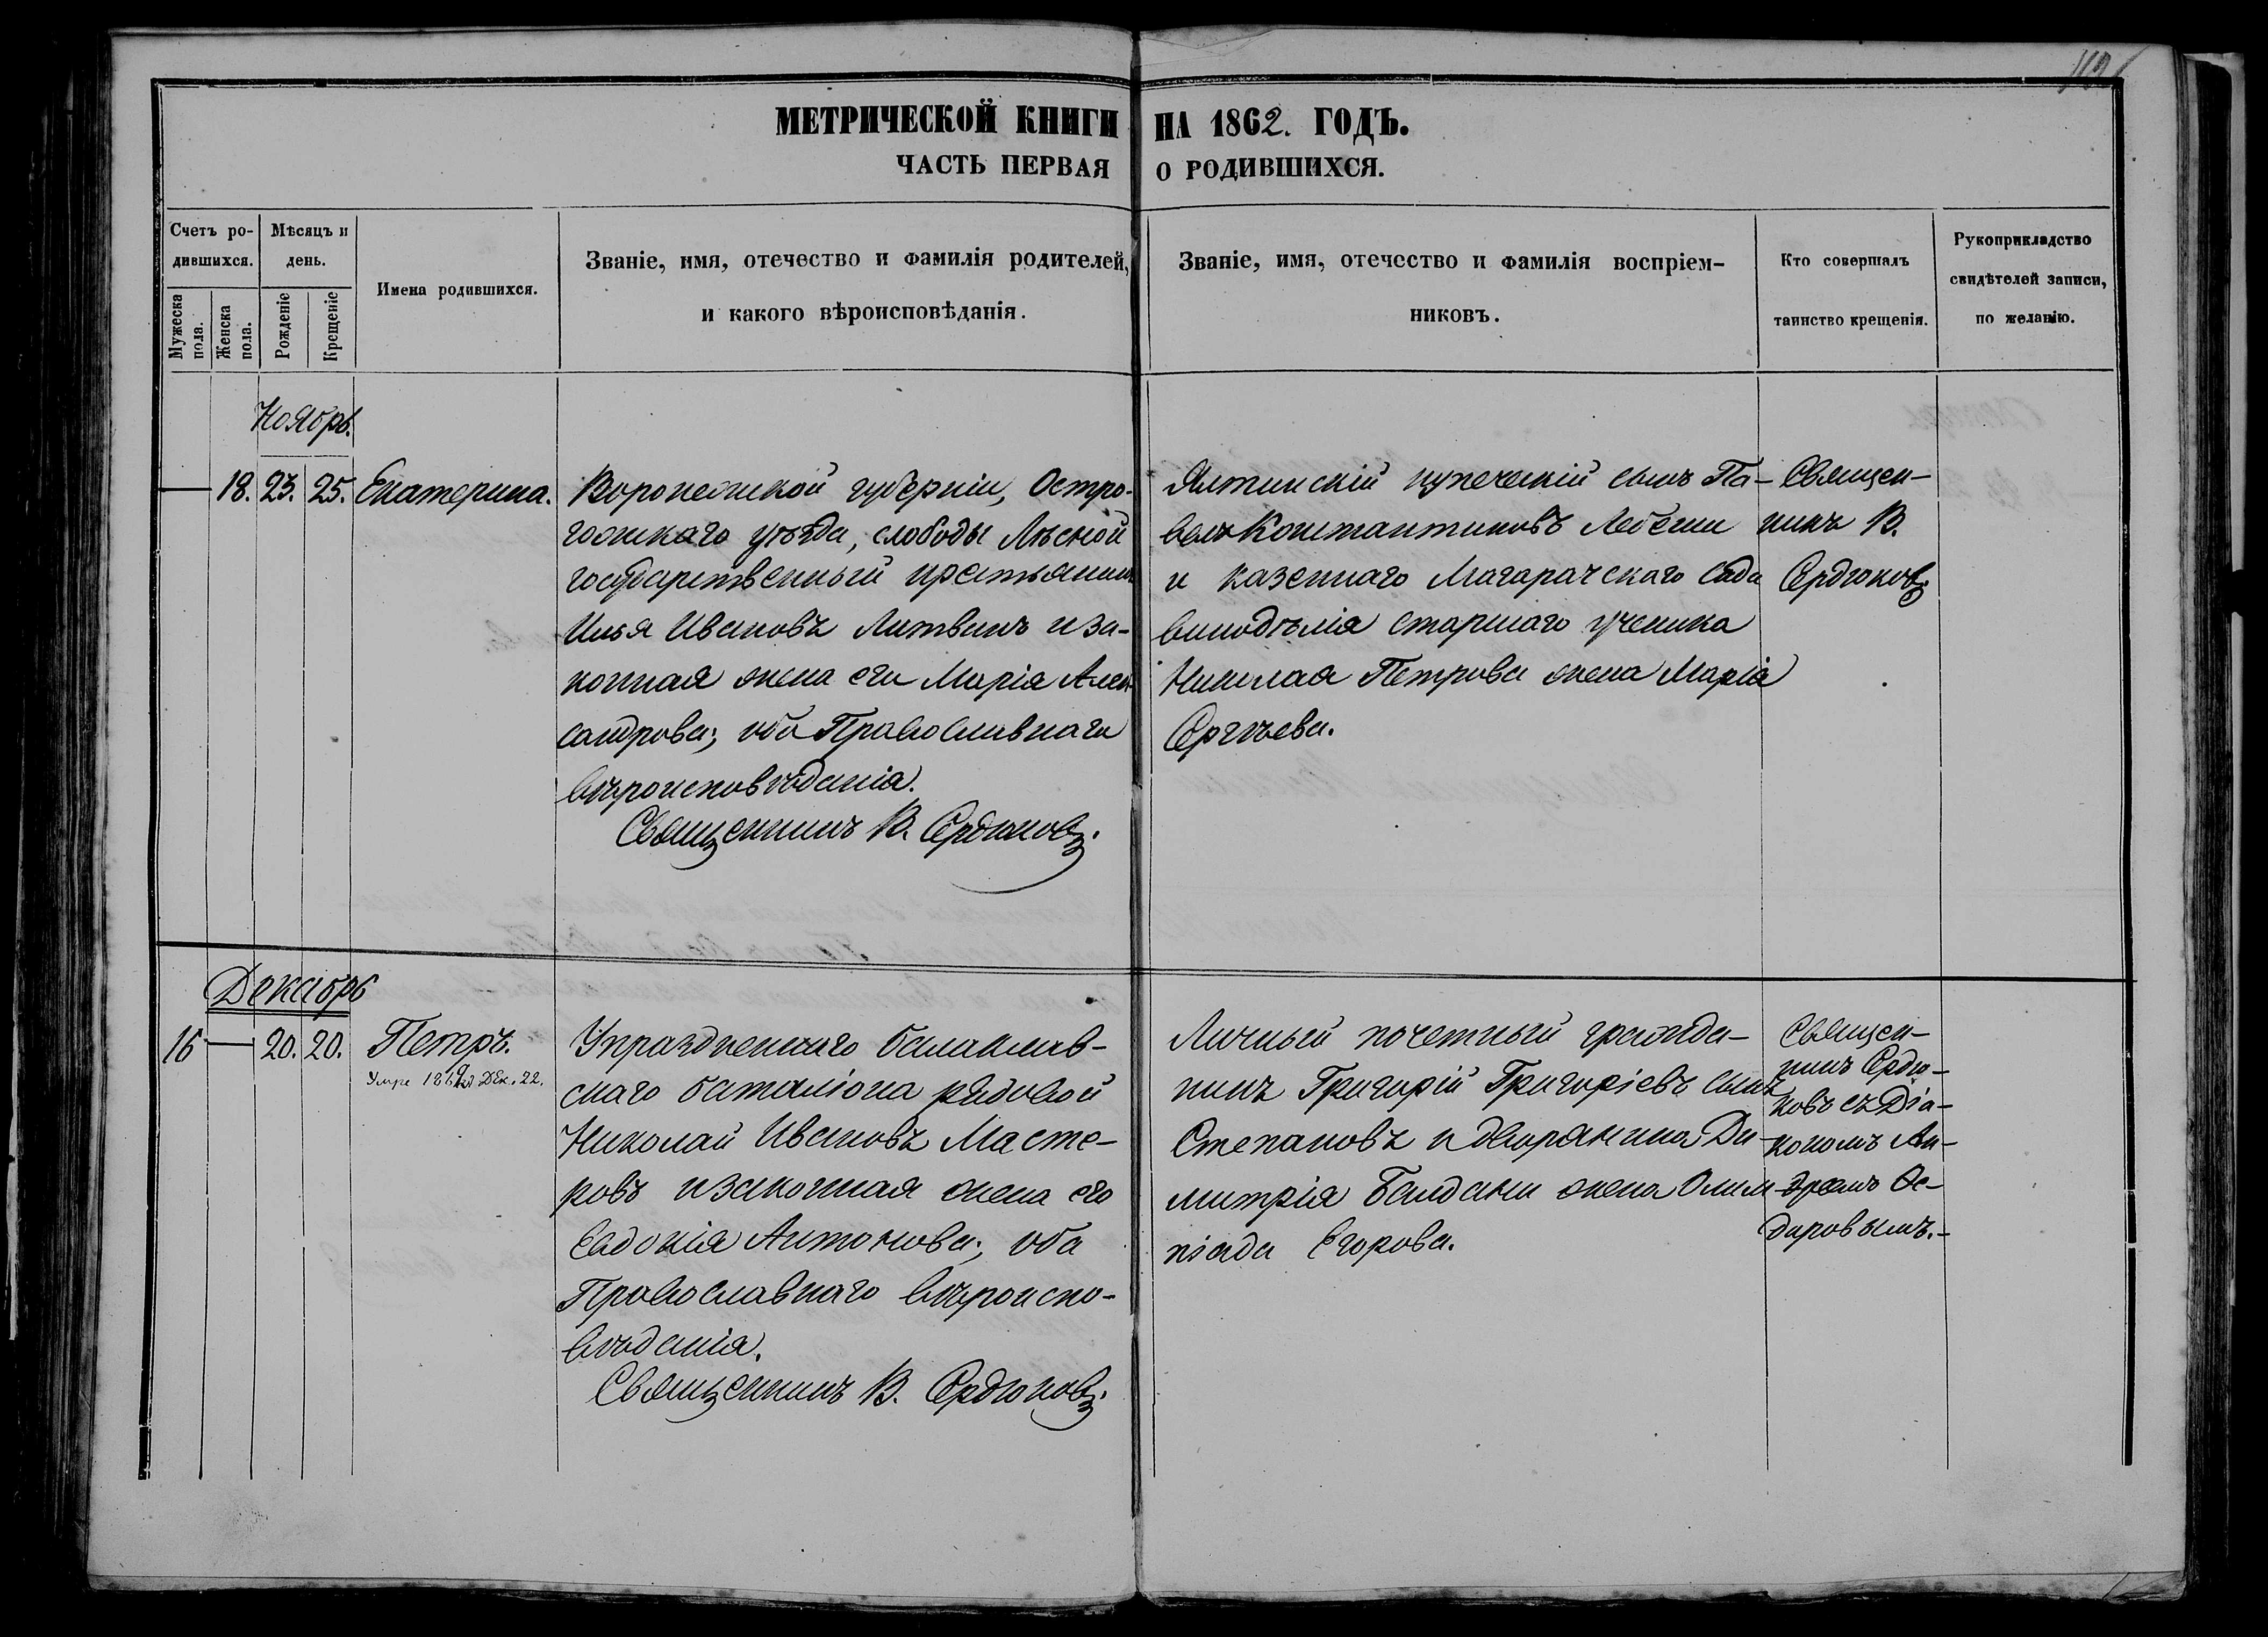 МЕТРИЧЕСКОЙ КНИГИ НА 1862. ГОДЪ.
ЧАСТЬ ПЕРВАЯ О РОДИВШИХСЯ.
Счетъ ро-
дившихся.
Мужеска пола.
Женска пола.
Мѣсяцъ и
день.
Рожденіе
Крещеніе
Имена родившихся.
Званіе, имя, отечество и фамилія родителей,
и какого вѣроисповѣданія.
Званіе, имя, отечество и фамилія воспріем-
никовъ.
Кто совершалъ
таинство крещенія.
Рукоприкладство
свидѣтелей записи,
по желанію.
Ноябрь.
18. 23. 25. Екатерина.
Воронежской губерніи, Остро-
гожскаго уѣзда, слободы Лѣсной
государственный крестьянинъ
Илья Ивановъ Литвинъ и за-
конная жена его Марія Алек-
сандрова; оба Православнаго
вѣроисповѣданія.
Священникъ В. Сердюковъ.
Ялтинскій купеческій сынъ Па-
велъ Константиновъ
и казеннаго Магарачскаго сада
винодѣлія старшаго ученика
Николая Петрова жена Марія
Сергѣева.
Священ-
никъ В.
Сердюковъ
Декабрь
16 — 20. 20. Петръ.
Умре Дек. 22.
Упраздненнаго Балаклав-
скаго баталіона рядовой
Николай Ивановъ Масте-
ровъ и законная жена его
Евдокія Антонова; оба
Православнаго вѣроиспо-
вѣданія.
Священникъ В. Сердюковъ.
Личный почетный гражда-
нинъ Григорій Григоріевъ сынъ
Степановъ и дворянина Ди-
митрія Балдани жена Олим-
піада Егорова.
Священ-
никъ Сердю-
ковъ съ Діа-
кономъ Ан-
дреемъ Ос-
даровымъ.-